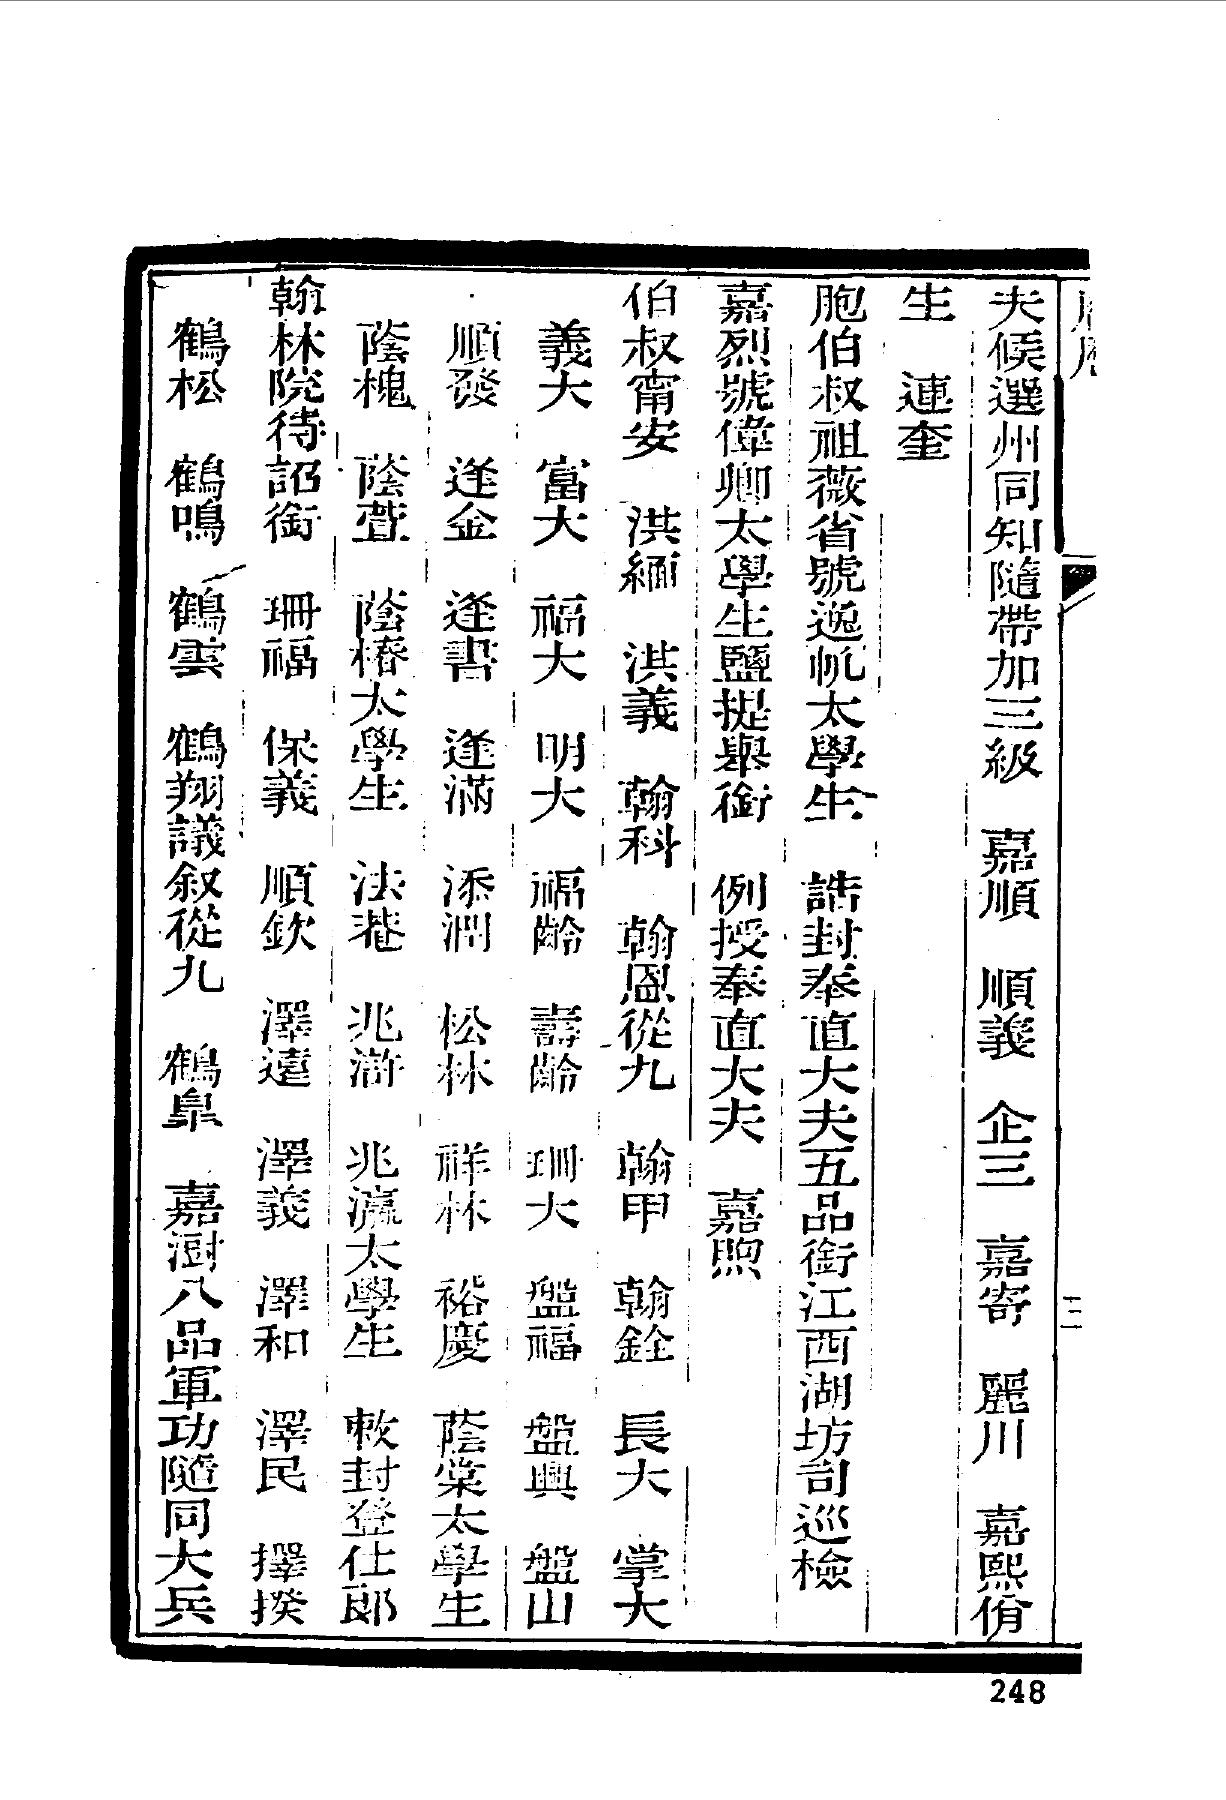 夫候選州同知隨帶加三級　嘉順　順義　企三　嘉寄　麗川　嘉熙佾
生　連奎
胞伯叔祖薇省號逸帆太學生　誥封奉直大夫五品銜江西湖坊司巡檢
嘉烈號偉卿太學生鹽提舉銜　例授奉直大夫　嘉煦
伯叔甯安　洪緬　洪義　翰科　翰恩從九　翰甲　翰銓　長大　掌大
義大　富大　福大　明大　福齡　壽齡　珊大　盤福　盤興　盤山
順發　逢金　逢書　逢滿　添潤　松林　祥林　裕慶　蔭棠太學生
蔭槐　蔭萱　蔭椿太學生　法菴　兆滸　兆瀛太學生　敕封登仕郎
翰林院待詔銜　珊福　保義　順欽　澤遠　澤義　澤和　澤民　擇揆
鶴松　鶴鳴　鶴雲　鶴翔議叙從九　鶴皐　嘉澍八品軍功隨同大兵
三
248